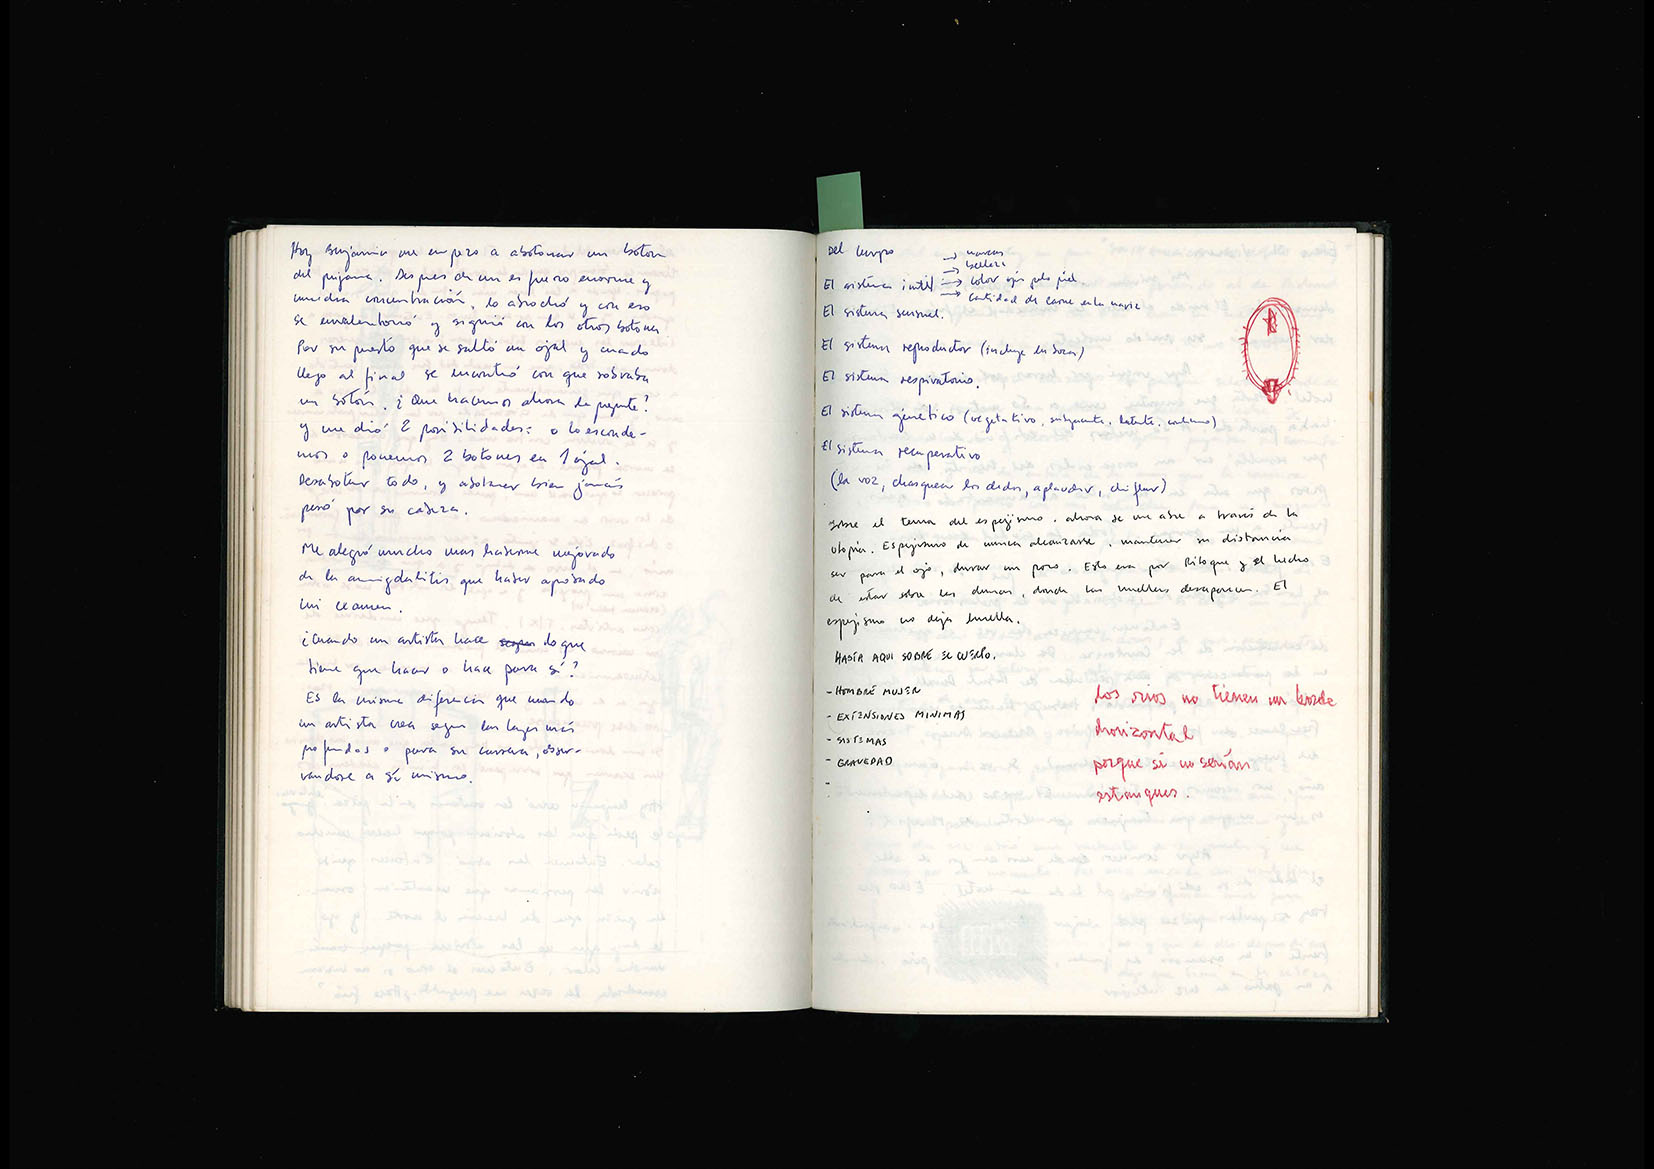 Hoy Benjamin me empezo a abotonar un boton
del pijama. Despues de un esfuerzo enorme y
mucha concentración, lo abrochó y con eso
se envalentonó y siguió con los otros botones
Por supuesto que se saltó un ojal y cuando
llego al final se encontró con que sobraba
un botón. ¿Que hacemos ahora le pregunté?
y me dió 2 posibilidades: o lo esconde-
mos o ponemos 2 botones en 1 ojal.
Desabotonar todo, y abotonar bien jamás
pasó por su cabeza.
Me alegró mucho mas haberme mejorado
de la amigdalitis que haber aprobado
mi examen.
¿Cuando un artista hace lo que
tiene que hacer o hace para sí?
Es la misma diferencia que cuando
un artista crea segun las leyes más
profundas o para su carrera, obser-
vandose a sí mismo.
Del cuerpo
→ marcas
→ belleza
El sistema inútil → color ojo pelo piel
→ cantidad de carne en la nariz
El sistema sensual.
El sistema reproductor (incluye la boca)
El sistema respiratorio.
El sistema genético (vegetativo, latente,
El sistema recuperativo
(la voz, chasquear los dedos, aplaudir, chiflar)
Sobre el tema del espejismo. ahora se me abre a través de la
utopía. Espejismo de nunca alcanzarse, mantener su distancia
ser para el ojo, durar un poco. Esto era por Ritoque y el hecho
de estar sobre las dunas, donde las huellas desaparecen. El
espejismo no deja huella.
HASTA AQUI SOBRE EL CUERPO.
- HOMBRE MUJER
- EXTENSIONES MINIMAS
- SISTEMAS
- GRAVEDAD
-
Los rios no tienen un borde
horizontal
porque si no serían
estanques.